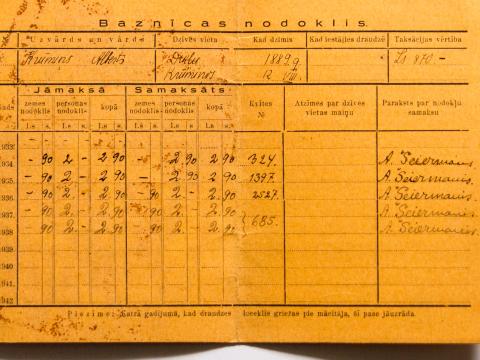 Baznīcas nodoklis.
№ Uzvārds un vārds Dzīves vieta Kad dzimis Kad iestājies draudzē Taksācijas vērtība
Krūmiņš Alberts 1889 g. Ls 870.–
Krūmiņos 12 VIII.
Jāmaksā Samaksāts Kvites № Atzīmes par dzīves vietas maiņu Paraksts par nodokļu samaksu
gads zemes nodoklis personas nodoklis kopā zemes nodoklis personas nodoklis kopā
Ls s. Ls s. Ls s. Ls s. Ls s. Ls s.
1933
1934 – 90 2 – 2 90 – – 2 90 2 90 324. A. Seiermanis
1935 – 90 2 – 2 90 – – 2 90 2 90 1397. A. Seiermanis
1936 – 90 2 – 2 90 – 90 2 – 2 90 2527. A. Seiermanis
1937 – 90 2 – 2 90 – 90 2 – 2 90 685. A. Seiermanis
1938 – 90 2 – 2 90 – 90 2 – 2 90 A. Seiermanis.
1939
1940
1941
1942
Piezīme: Katrā gadījumā, kad draudzes loceklis griežas pie mācītāja, šī pase jāuzrāda.